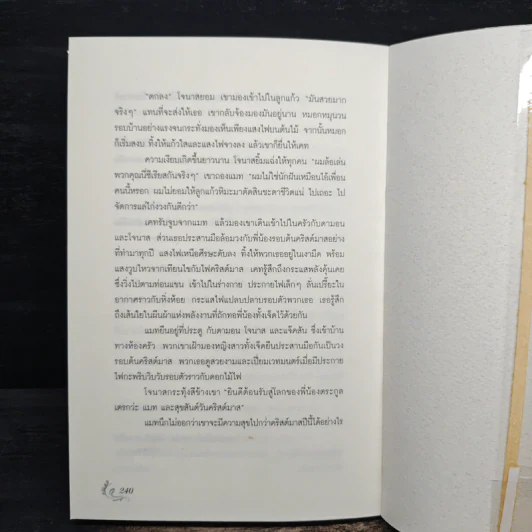 "ตกลง" โจนาสยอม เขามองเข้าไปในลูกแก้ว "มันสวยมาก
จริงๆ" แทนที่จะส่งให้เธอ เขากลับจ้องมองมันอยู่นาน หมอกหมุนวน
รอบบ้านอย่างแรงจนกระทั่งมองเห็นเพียงแสงไฟบนต้นไม้ จากนั้นหมอก
ก็เริ่มสงบ ทิ้งให้แก้วใสและแสงไฟจางลง แล้วเขาก็ยื่นให้เคท
ความเงียบเกิดขึ้นยาวนาน โจนาสยิ้มแฉ่งให้ทุกคน "ผมล้อเล่น
พวกคุณนี่ซีเรียสกันจริงๆ" เขามองแมท "ผมไม่ใช่นักฝันเหมือนไอ้เพื่อน
คนนี้หรอก ผมไม่ยอมให้ลูกแก้วหิมะมาตัดสินชะตาชีวิตแน่ ไปเถอะ ไป
จัดการแล่ไก่งวงกันดีกว่า"
เคทรับจูบจากแมท แล้วมองเขาเดินเข้าไปในครัวกับดามอน
และโจนาส ส่วนเธอประสานมือล้อมวงกับพี่น้องรอบต้นคริสต์มาสอย่าง
ที่ทำมาทุกปี แสงไฟเหนือศีรษะดับลง ทิ้งให้พวกเธออยู่ในเงามืด พร้อม
แสงวูบไหวจากเทียนไขกับไฟคริสต์มาส เคทรู้สึกถึงกระแสพลังคุ้นเคย
ซึ่งวิ่งไปตามท่อนแขน เข้าไปในร่างกาย ประกายไฟเล็กๆ ลั่นเปรี๊ยะใน
อากาศราวกับหิ่งห้อย กระแสไฟแปลบปลาบรอบตัวพวกเธอ เธอรู้สึก
ถึงเส้นใยในผืนผ้าแห่งพลังงานที่ถักทอพี่น้องทั้งเจ็ดไว้ด้วยกัน
แมทยืนอยู่ที่ประตู กับดามอน โจนาส และแจ็คสัน ซึ่งเข้าบ้าน
ทางห้องครัว พวกเขาเฝ้ามองหญิงสาวทั้งเจ็ดยืนประสานมือกันเป็นวง
รอบต้นคริสต์มาส พวกเธอดูสวยงามและเปี่ยมเวทมนตร์เมื่อมีประกาย
ไฟกะพริบวิบวับรอบตัวราวกับดอกไม้ไฟ
โจนาสกระทุ้งสีข้างเขา "ยินดีต้อนรับสู่โลกของพี่น้องตระกูล
เดรกว่ะ แมท และสุขสันต์วันคริสต์มาส"
แมทนึกไม่ออกว่าเขาจะมีความสุขไปกว่าคริสต์มาสปีนี้ได้อย่างไร
240